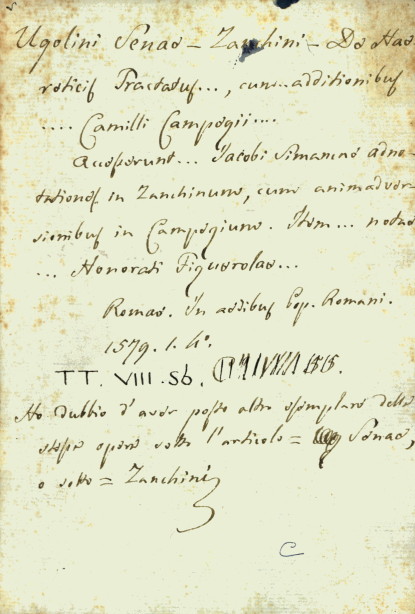 Ugolini Senae - Zanchini - De Hae
reticis Tractatus..., cum additionibus
.... Camilli Campegii....
Accesserunt... Jacobi Simancae adno-
tationes in Zanchinum, cum animadver
sionibus in Campegium. Item... notae
... Honorati Figuerolae...
Romae. In aedibus Pop. Romani.
1579. 1. 4°.
TT. VIII. 56.
Ho dubbio d'aver posto altro esemplare della
stessa opera sotto l'articolo = Senae,
o sotto = Zanchini
C